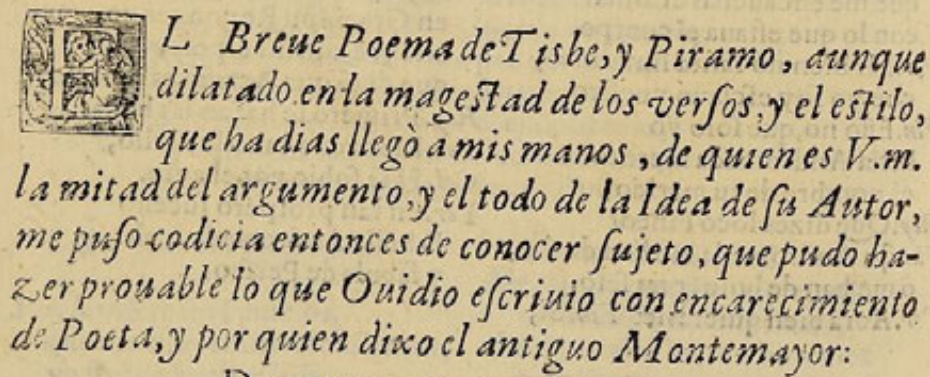 EL Breue Poema de Tisbe, y Piramo, aunque
dilatado en la magestad de los versos, y el estilo,
que ha dias llegò a mis manos, de quien es V.m.
la mitad del argumento, y el todo de la Idea de su Autor,
me puso codicia entonces de conocer sujeto, que pudo ha-
zer prouable lo que Ouidio escriuio con encarecimiento
de Poeta, y por quien dixo el antiguo Montemayor: